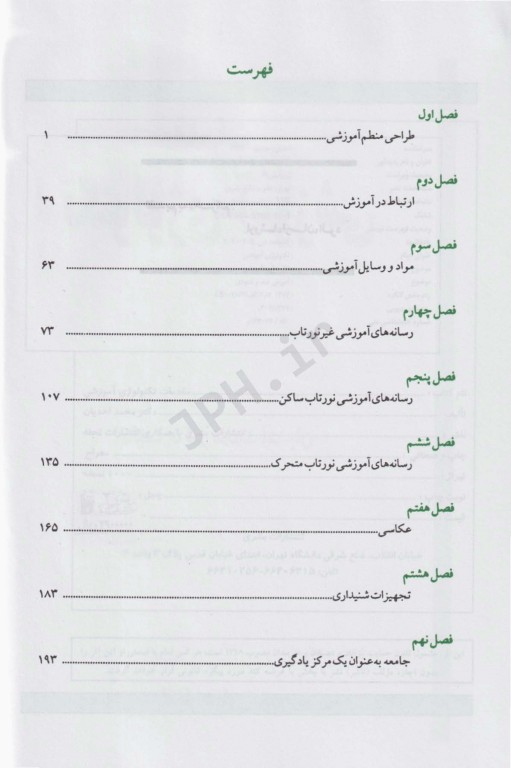 فهرست
فصل اول
طراحی منظم آموزشی ........ ۱
فصل دوم
ارتباط در آموزش ........ ۳۹
فصل سوم
مواد و وسایل آموزشی ........ ۶۳
فصل چهارم
رسانه‌های آموزشی غیرنورتاب ........ ۷۳
فصل پنجم
رسانه‌های آموزشی نورتاب ساکن ........ ۱۰۷
فصل ششم
رسانه‌های آموزشی نورتاب متحرک ........ ۱۳۵
فصل هفتم
عکاسی ........ ۱۶۵
فصل هشتم
تجهیزات شنیداری ........ ۱۸۳
فصل نهم
جامعه به‌عنوان یک مرکز یادگیری ........ ۱۹۳
JPH.ir